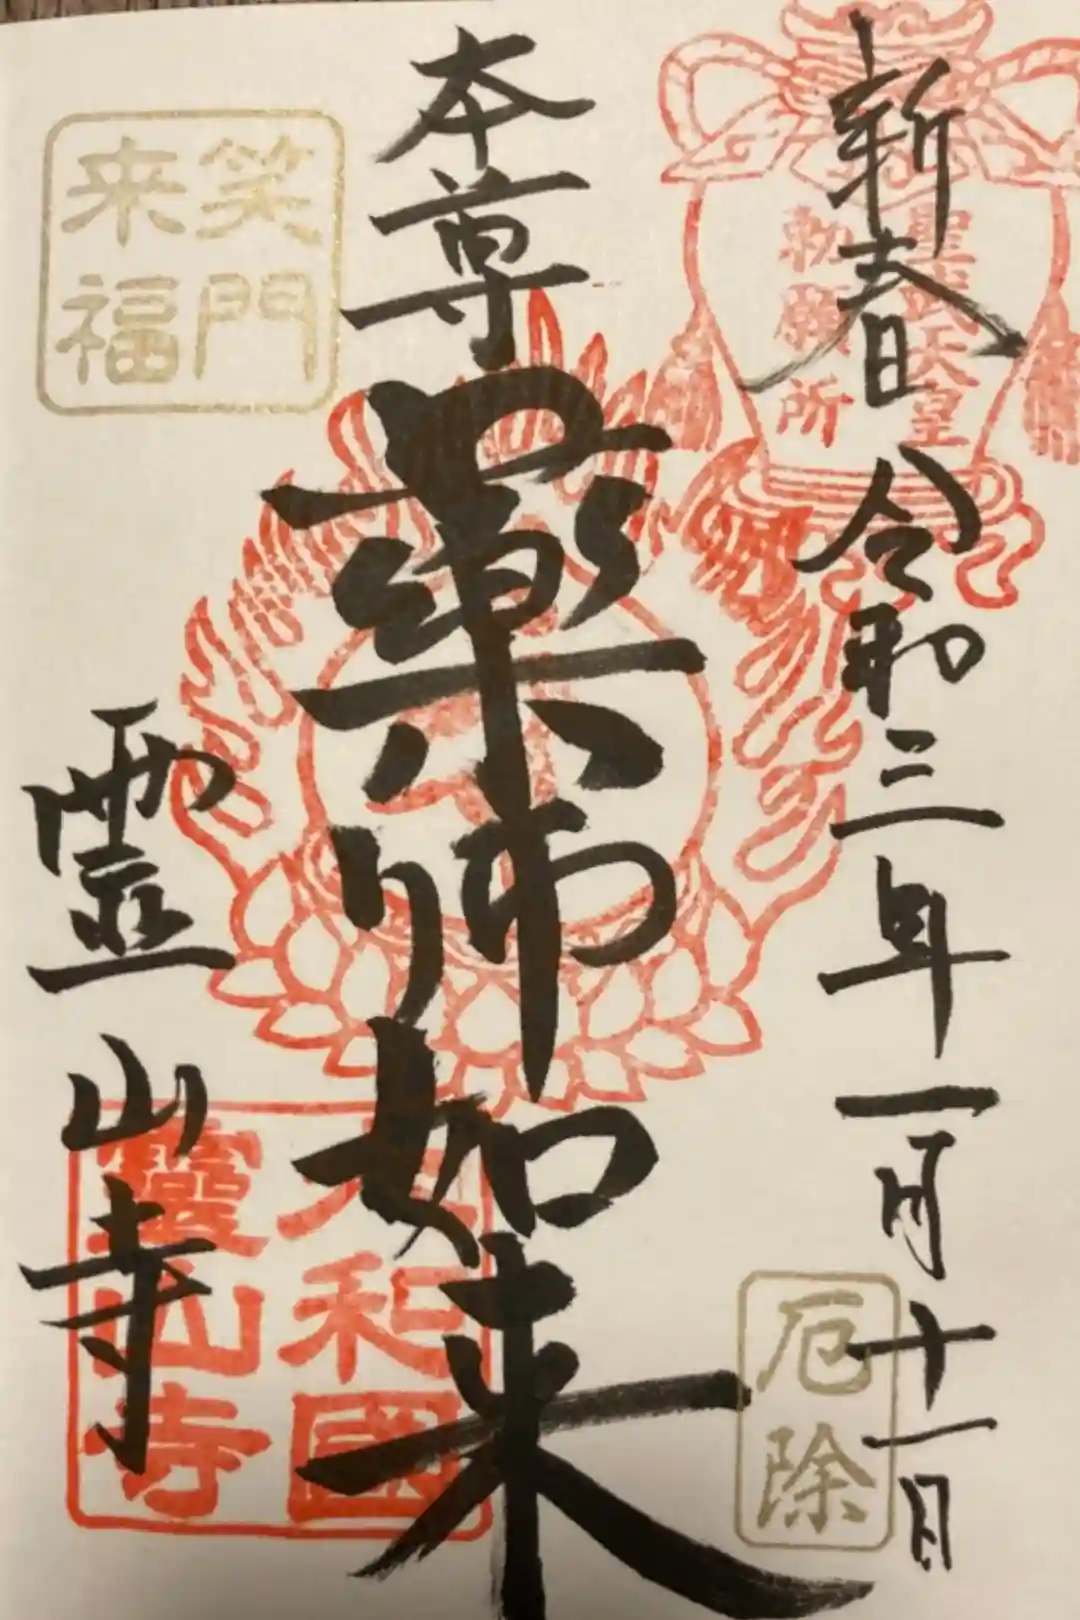 新春 令和三年一月十一日
聖武天皇
勅願所
厄除
本尊
薬師如来
大和國
靈山寺
霊山寺
笑門
来福